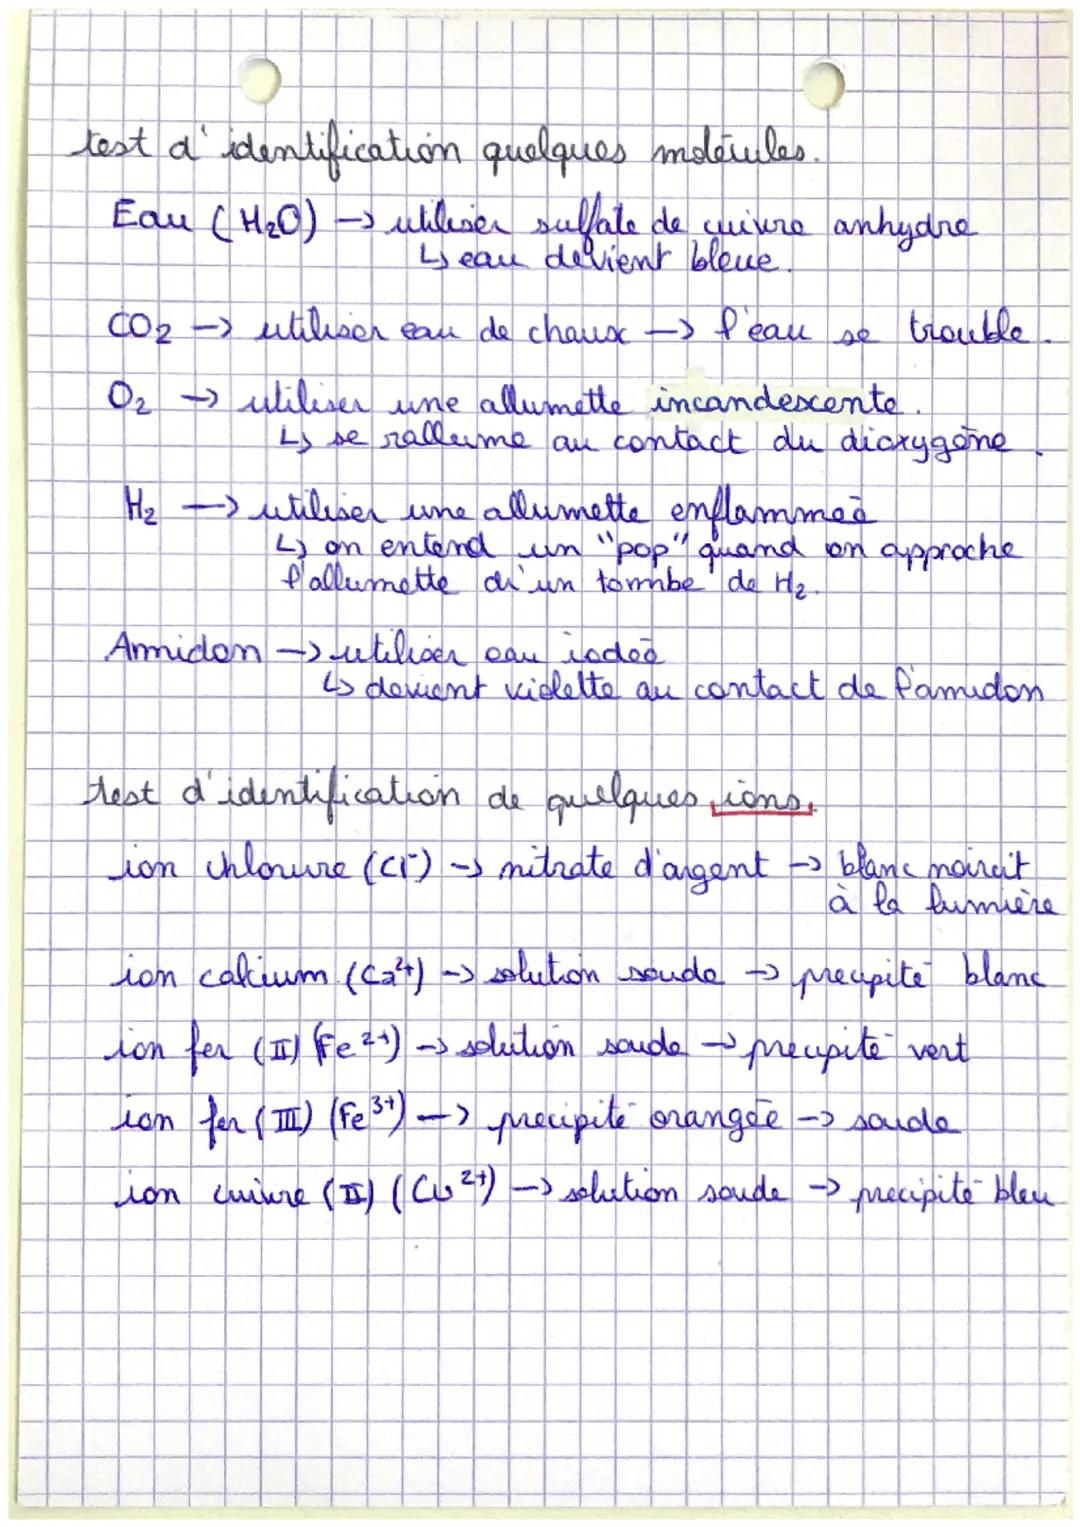 test d'identification quelques molécules.
Eau (H₂O) → utiliser sulfate de cuivre anhydre
↳ eau devient bleue.
CO₂ → utiliser eau de chaux → l'eau se trouble.
O₂ → utiliser une allumette incandescente.
↳ se rallume au contact du dioxygène.
H₂ → utiliser une allumette enflammée
↳ on entend un "pop" quand on approche
l'allumette d'un tombe de H₂.
Amidon → utiliser eau iodée
↳ devient violette au contact de l'amidon
test d'identification de quelques ions.
ion chlorure (Cl⁻) → nitrate d'argent → blanc noircit
à la lumière
ion calcium (Ca²⁺) → solution soude → precipité blanc
ion fer (II) (Fe²⁺) → solution soude → precipité vert
ion fer (III) (Fe³⁺) → precipité orangée → soude
ion cuivre (II) (Cu²⁺) → solution soude → precipité bleu